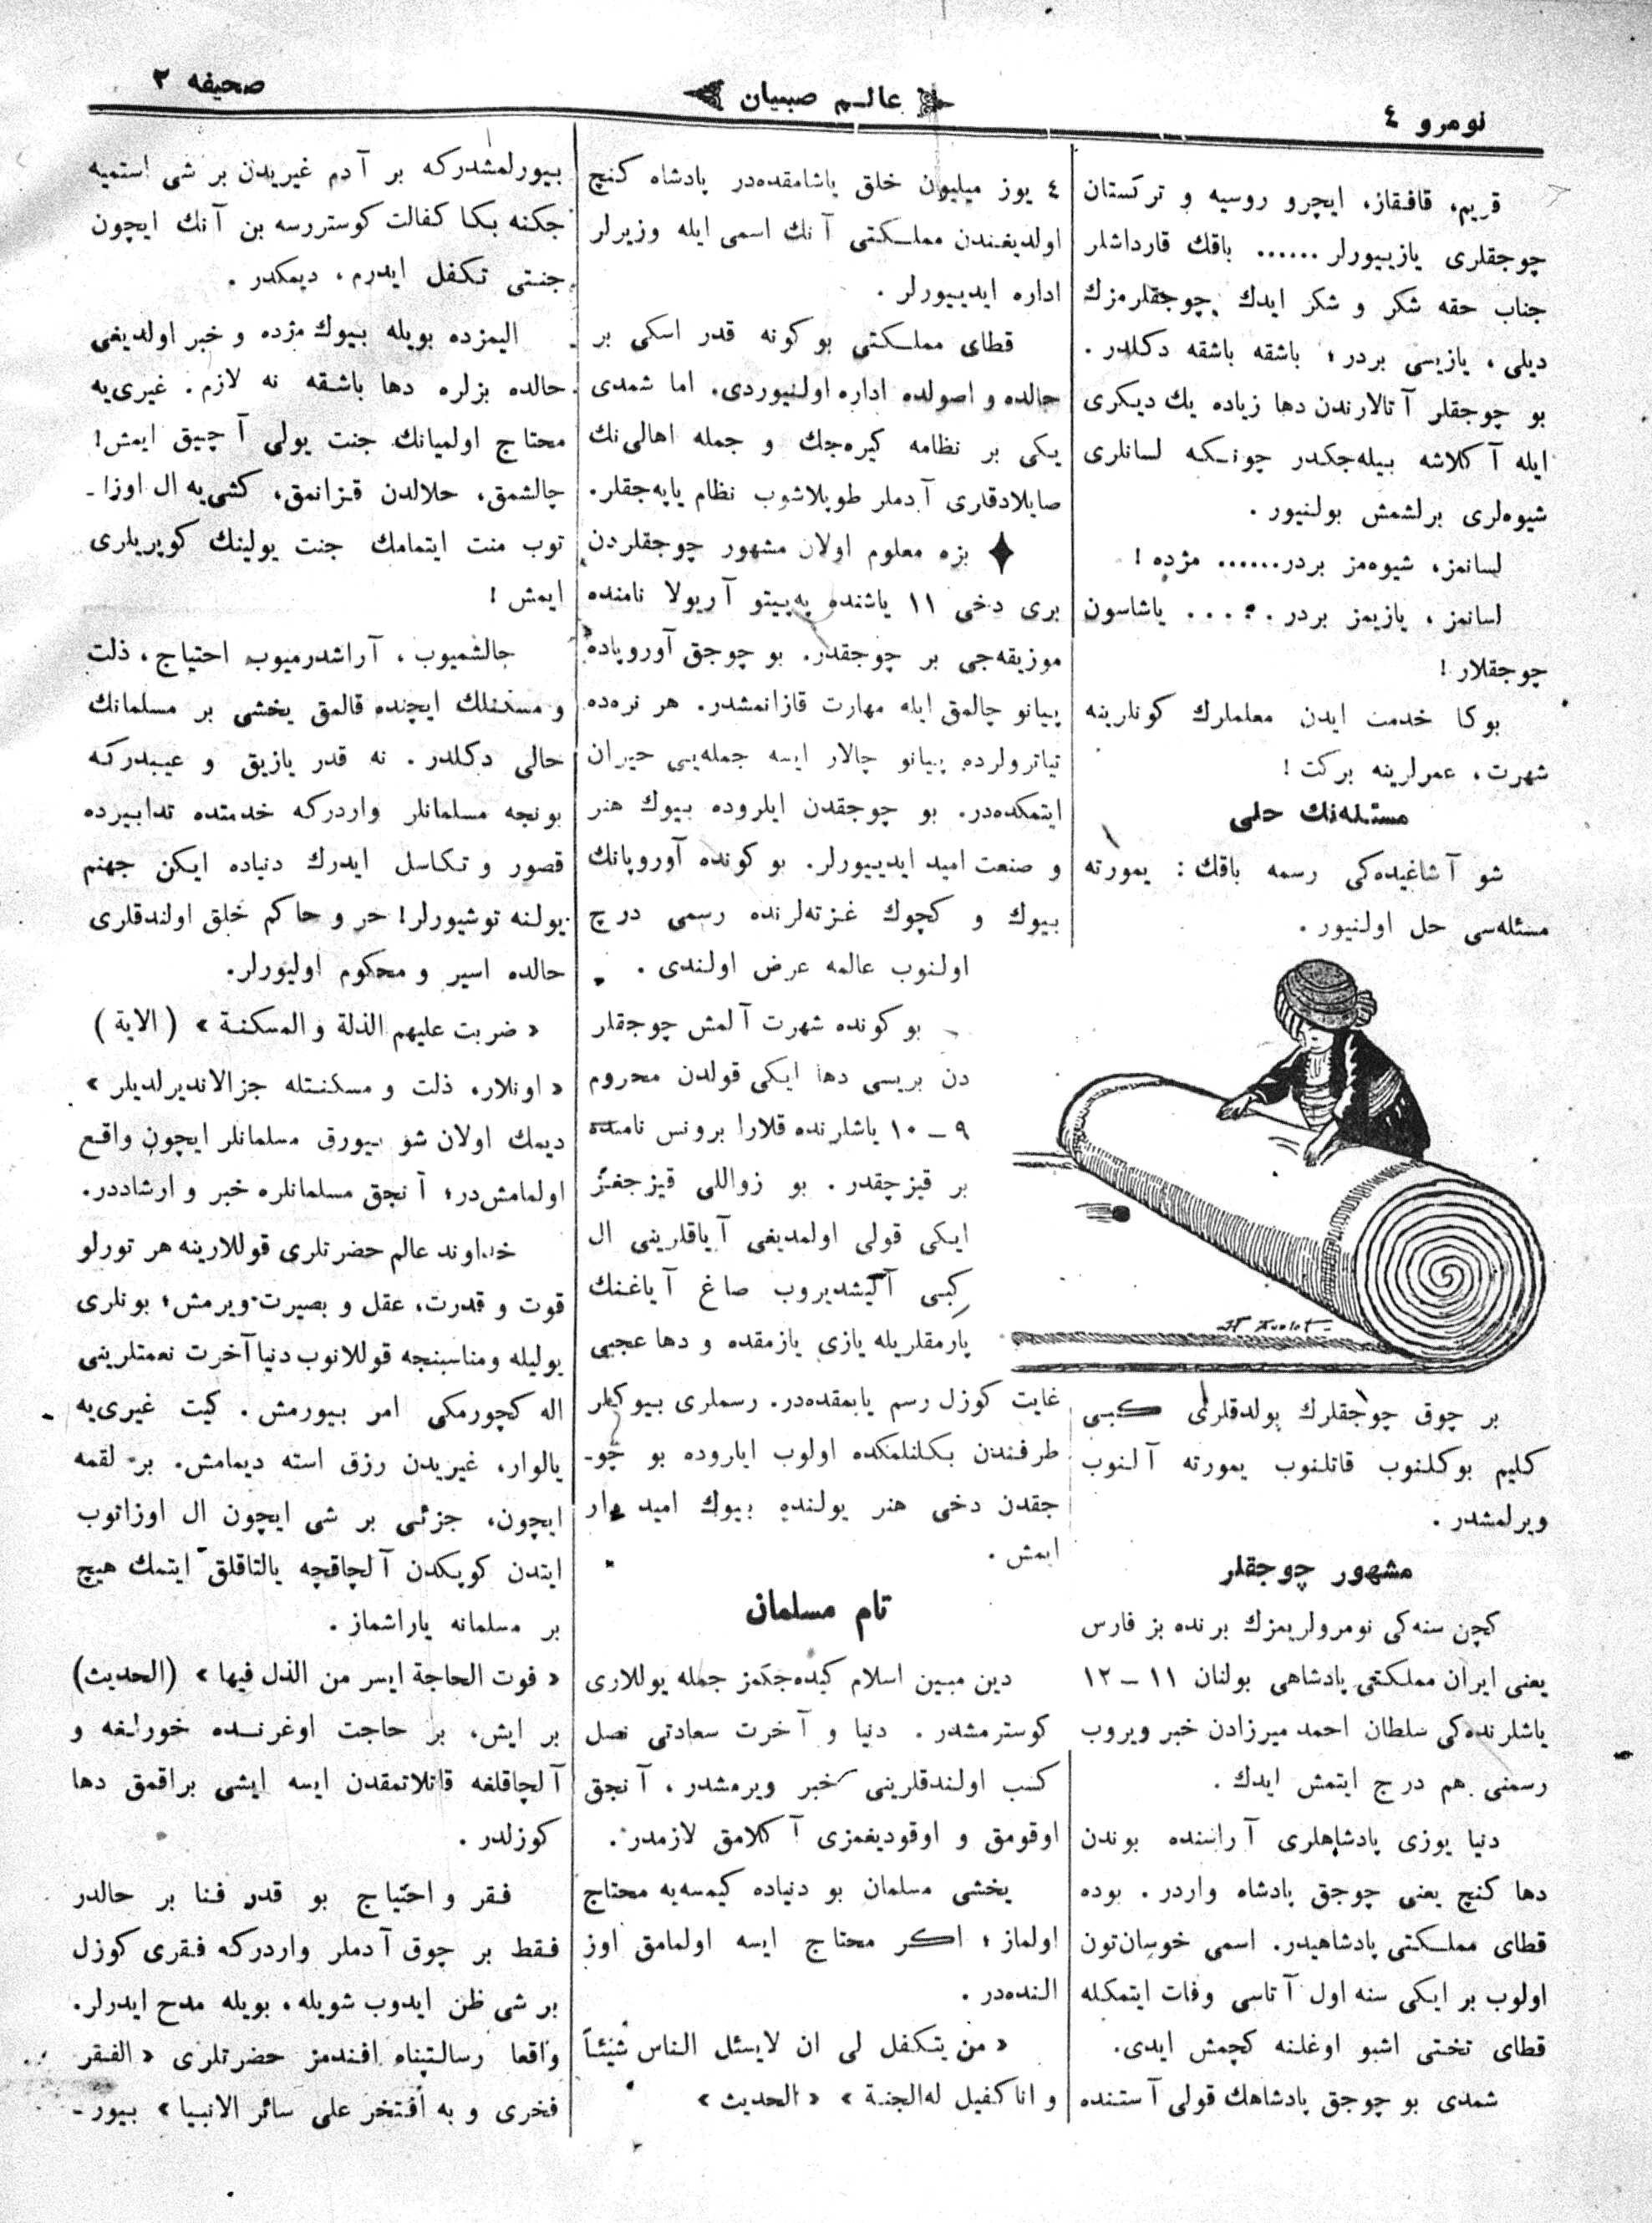 نومرو ٤
عالـم صبيان
صحيفه ٣
قريم، قافقاز، ايچرو روسيه و تركستان
چوجقلرى يازييورلر ...... باقك قارداشلر
جناب حقه شكر و شكر ايدك چوجقلرمزك
ديلى ، يازيسى بردر ؛ باشقه باشقه دكلدر .
بو چوجقلر آتالارندن دها زياده يك ديكرى
ايله آكلاشه بيله‌جكدر چونكه لسانلرى
شيوه‌لرى برلشمش بولنيور .
لسانمز، شيوه‌مز بردر...... مژده !
لسانمز ، يازيمز بردر ..... ياشاسون
چوجقلار !
بوكا خدمت ايدن معلملرك كونلرينه
شهرت، عمرلرينه بركت !
مسئله‌نك حلى
شو آشاغيده‌كى رسمه باقك : يمورته
مسئله‌سى حل اولنيور .
بر چوق چوجقلرك بولدقلرى كبى
كليم بوكلنوب قاتلنوب يمورته آلنوب
ويرلمشدر .
مشهور چوجقلر
كچن سنه‌كى نومرولريمزك برنده بز فارس
يعنى ايران مملكتى پادشاهى بولنان ١١ – ١٢
ياشلرنده‌كى سلطان احمد ميرزادن خبر ويروب
رسمنى هم درج ايتمش ايدك .
دنيا يوزى پادشاهلرى آراسنده بوندن
دها كنچ يعنى چوجق پادشاه واردر . بوده
قطاى مملـكتى پادشاهيدر. اسمى خوسان‌تون
اولوب بر ايكى سنه اول آتاسى وفات ايتمكله
قطاى تختى اشبو اوغلنه كچمش ايدى.
شمدى بو چوجق پادشاهك قولى آستنده
٤ يوز ميليون خلق ياشامقده‌در پادشاه كنچ
اولديغندن مملـكتى آنك اسمى ايله وزيرلر
اداره ايدييورلر .
قطاى مملـكتى بو كونه قدر اسكى بر
حالده و اصولده اداره اولنيوردى. اما شمدى
يكى بر نظامه كيره‌جك و جمله اهالى‌نك
صايلادقلرى آدملر طوپلاشوب نظام ياپه‌جقلر.
بزه معلوم اولان مشهور چوجقلردن
برى دخى ١١ ياشنده په‌پيتو آريولا نامنده
موزيقه‌جى بر چوجقدر. بو چوجق آوروپاده
پيانو چالمق ايله مهارت قازانمشدر. هر نره‌ده
تياترولرده پيانو چالار ايسه جمله‌يى حيران
ايتمكده‌در. بو چوجقدن ايلروده بيوك هنر
و صنعت اميد ايدييورلر. بو كونده آوروپانك
بيوك و كچوك غزته‌لرنده رسمى درج
اولنوب عالمه عرض اولندى .
بو كونده شهرت آلمش چوجقلر
دن بريسى دها ايكى قولدن محروم
٩ – ١٠ ياشلرنده قلارا برونس نامنده
بر قيزچقدر . بو زواللى قيزجغز
ايكى قولى اولمديغى آياقلرينى ال
كبى آليشديروب صاغ آياغنك
پارمقلريله يازى يازمقده و دها عجبى
غايت كوزل رسم يابمقده‌در. رسملرى بيوكلر
طرفندن بكنلمكده اولوب ايلروده بو چو-
جقدن دخى هنر يولنده بيوك اميد وار
ايمش .
تام مسلمان
دين مبين اسلام كيده‌جكمز جمله يوللارى
كوسترمشدر . دنيا و آخرت سعادتى نصل
كسب اولندقلرينى خبر ويرمشدر ، آنجق
اوقومق و اوقوديغمزى آكلامق لازمدر .
يخشى مسلمان بو دنياده كيمسه‌يه محتاج
اولماز ؛ اكر محتاج ايسه اولمامق اوز
النده‌در .
« من يتكفل لى ان لايسئل الناس شيئاً
و انا كفيل له‌الجنة » « الحديث »
بيورلمشدركه بر آدم غيريدن بر شى استميه
جكنه بكا كفالت كوستررسه بن آنك ايچون
جنتى تكفل ايدرم ، ديمكدر .
اليمزده بويله بيوك مژده و خبر اولديغى
حالده بزلره دها باشقه نه لازم . غيرى‌يه
محتاج اولميانك جنت يولى آچيق ايمش!
چالشمق، حلالدن قزانمق، كشى‌يه ال اوزا-
توب منت ايتمامك جنت يولينك كوپريلرى
ايمش !
چالشميوب ، آراشدرميوب احتياج ، ذلت
و مسكنلك ايچنده قالمق يخشى بر مسلمانك
حالى دكلدر . نه قدر يازيق و عيبدركه
بونجه مسلمانلر واردركه خدمتده تدابيرده
قصور و تكاسل ايدرك دنياده ايكن جهنم
يولنه توشيورلر! حر و حاكم خلق اولندقلرى
حالده اسير و محكوم اوليورلر.
« ضربت عليهم الذلة و المسكنة » (الاية)
« اونلار، ذلت و مسكنتله جزالانديرلديلر »
ديمك اولان شو بيورق مسلمانلر ايچون واقع
اولمامش‌در؛ آنجق مسلمانلره خبر و ارشاددر.
خداوند عالم حضرتلرى قوللارينه هر تورلو
قوت و قدرت، عقل و بصيرت ويرمش؛ بونلرى
يوليله ومناسبنجه قوللانوب دنيا آخرت نعمتلرينى
اله كچورمكى امر بيورمش . كيت غيرى‌يه
يالوار، غيريدن رزق استه ديمامش. بر لقمه
ايچون، جزئى بر شى ايچون ال اوزاتوب
ايتدن كوپكدن آلچاقچه يالتاقلق ايتمك هيچ
بر مسلمانه ياراشماز .
« فوت الحاجة ايسر من الذل فيها » (الحديث)
بر ايش، بر حاجت اوغرنده خورلغه و
آلچاقلغه قاتلانمقدن ايسه ايشى براقمق دها
كوزلدر .
فقر و احتياج بو قدر فنا بر حالدر
فقط بر چوق آدملر واردركه فقرى كوزل
بر شى ظن ايدوب شويله، بويله مدح ايدرلر.
واقعا رسالتپناه افندمز حضرتلرى « الفقر
فخرى و به أفتخر على سائر الانبيا » بيور-